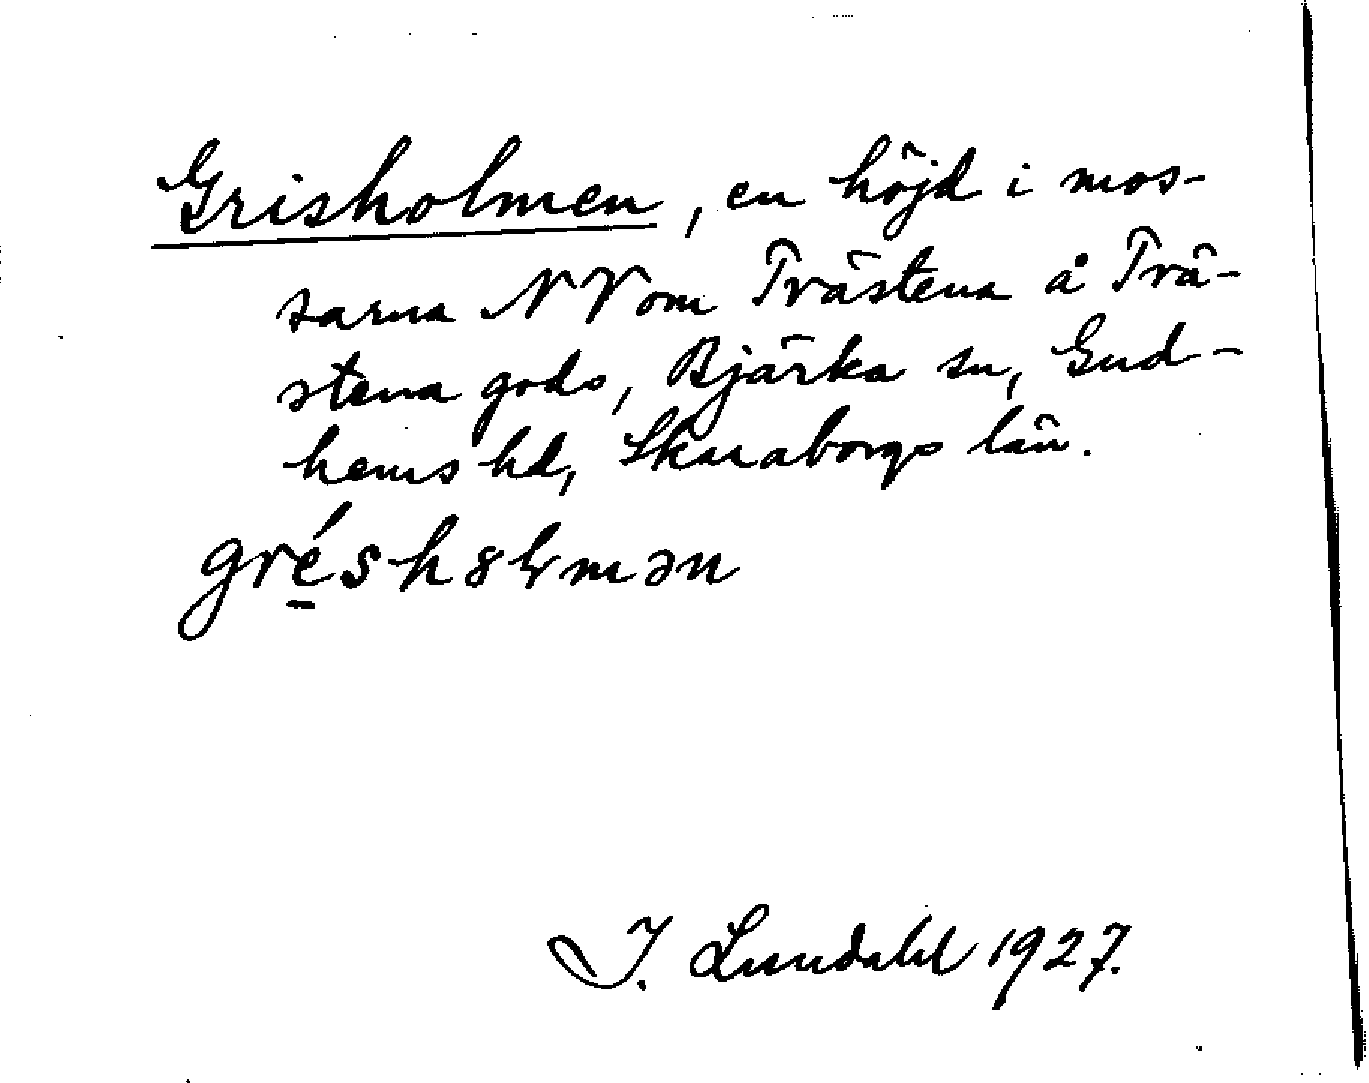 Grisholmen, en höjd i mos-
sarna NV om Trästena å Trä-
stena gods, Bjärka sn, Gud-
hems hd, Skaraborgs län.
I. Lundahl 1927.